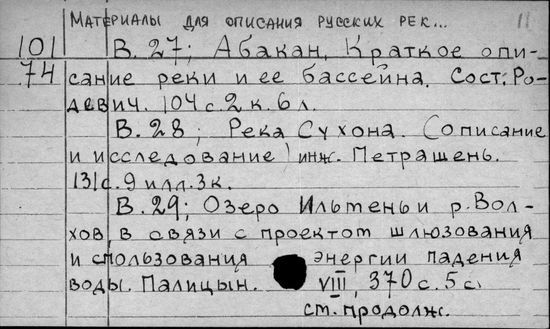 Материалы для описания русских рек... 11
101 В. 27; Абакан, Краткое опи-
74 сание реки и ее бассейна. Сост: Ро-
девич. 104 с. 2 к. 6 л.
В. 28; Река Сухона. (описание
и исследование) инж. Петрашень.
131с. 9 илл. 3к.
В. 29; Озеро Ильтень и р. Вол-
хов, в связи с проектот шлюзования
и спользования энергии падения
воды. Палицын. VIII, 370 с. 5 с.
ст. продолж.